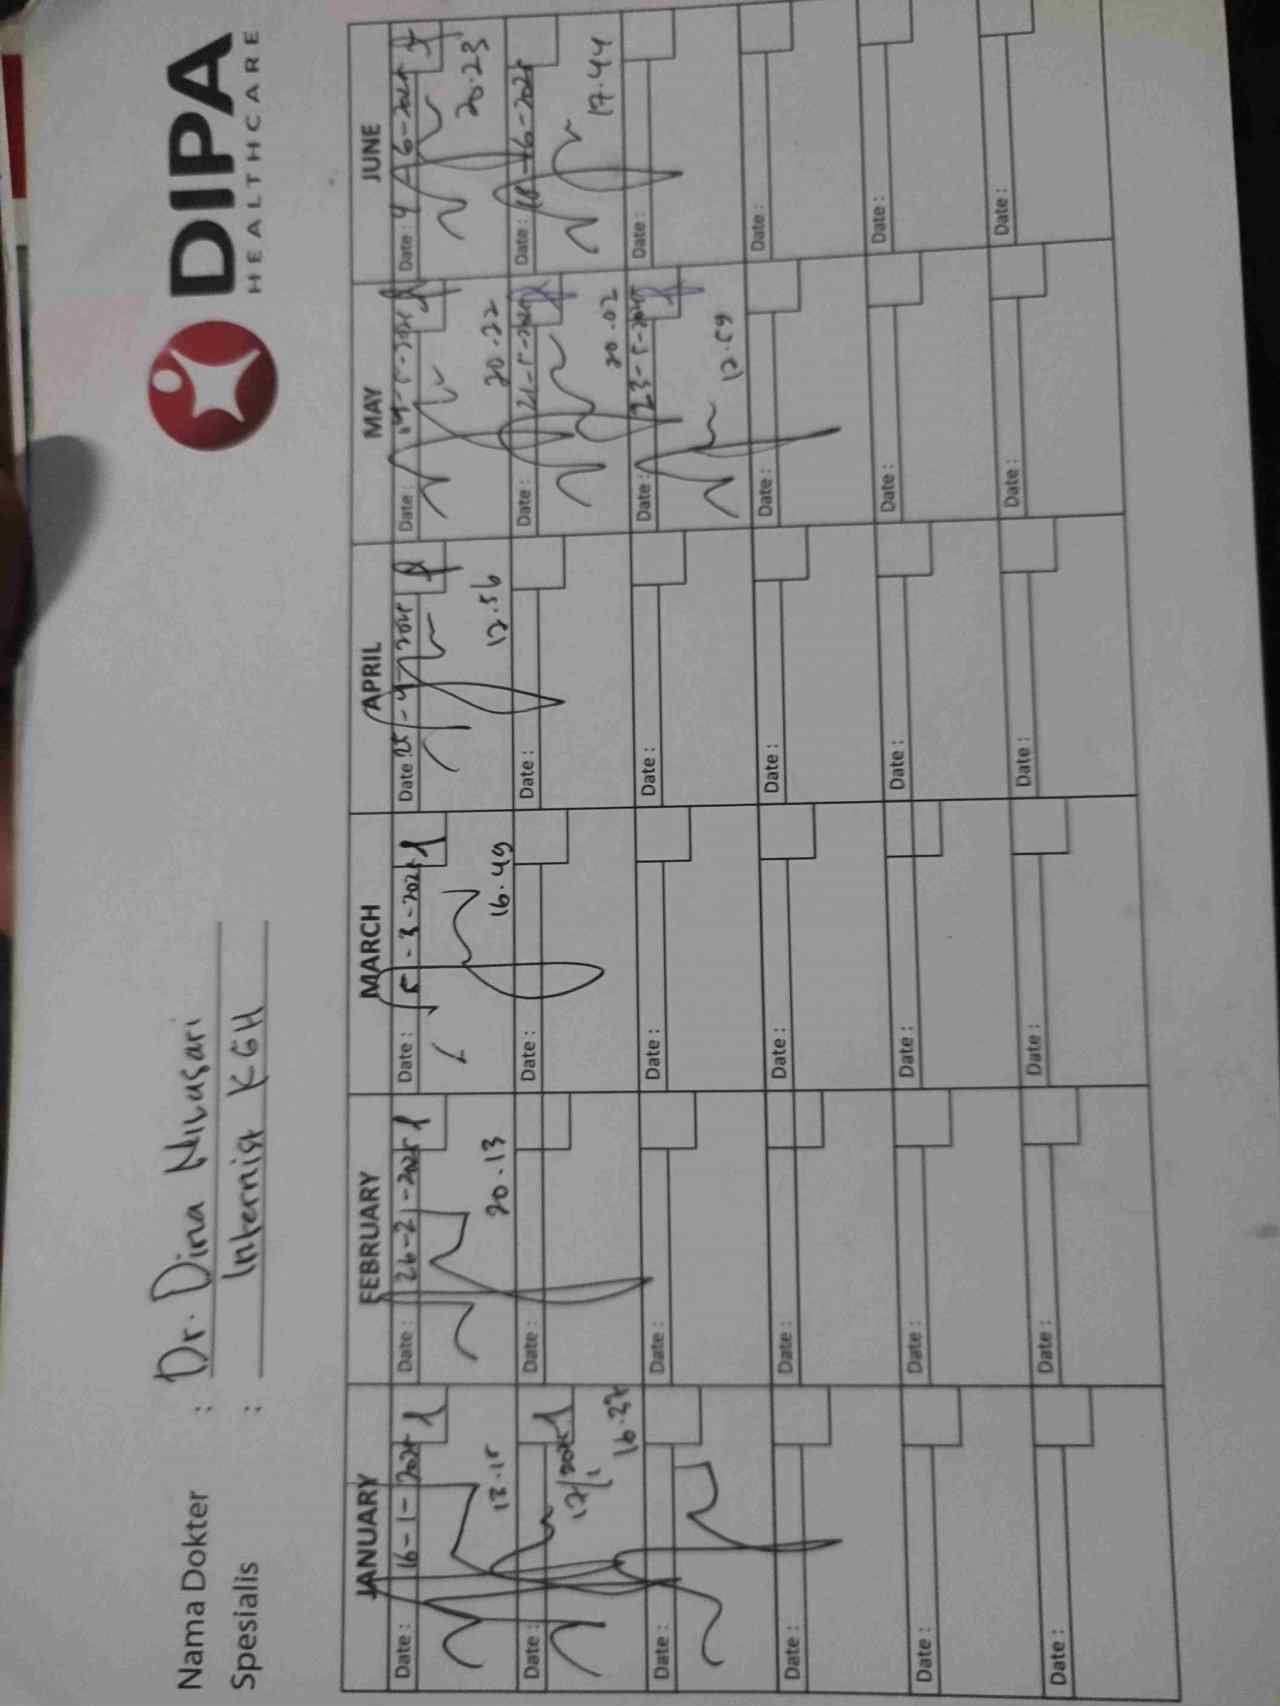 DIPA
HEALTHCARE
Nama Dokter : Dr. Dina Nilusari
Spesialis : Internist KGH
JANUARY FEBRUARY MARCH APRIL MAY JUNE
Date : 16-1-2025 Date : 26-2-2025 Date : 5-3-2025 Date : 25-4-2025 Date : 14-5-2025 Date : 4-6-2025
13.15 20.13 16.49 12.56 20.22 20.23
Date : Date : Date : Date : Date : 21-5-2025 Date : 18-6-2025
17/1 2025 16.27 20.02 17.44
Date : Date : Date : Date : Date : 23-5-2025 Date :
12.59
Date : Date : Date : Date : Date : Date :
Date : Date : Date : Date : Date : Date :
Date : Date : Date : Date : Date : Date :